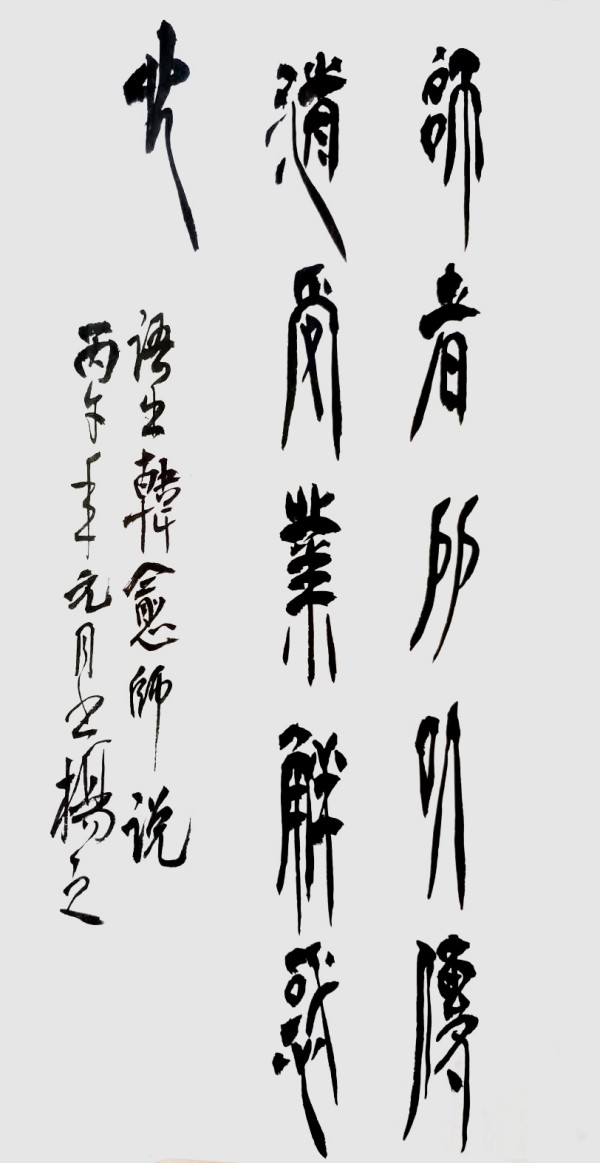 師者所以傳
道受業解惑
也
語出韓愈師说
丙午年元月書楊立